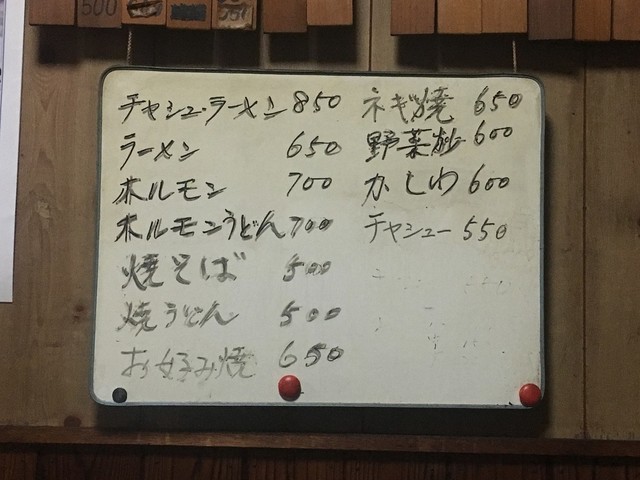 500
チャシュ・ラーメン 850
ラーメン 650
ホルモン 700
ホルモンうどん 700
焼そば 500
焼うどん 500
お好み焼 650
ネギ焼 650
野菜炒 600
かしわ 600
チャシュー 550